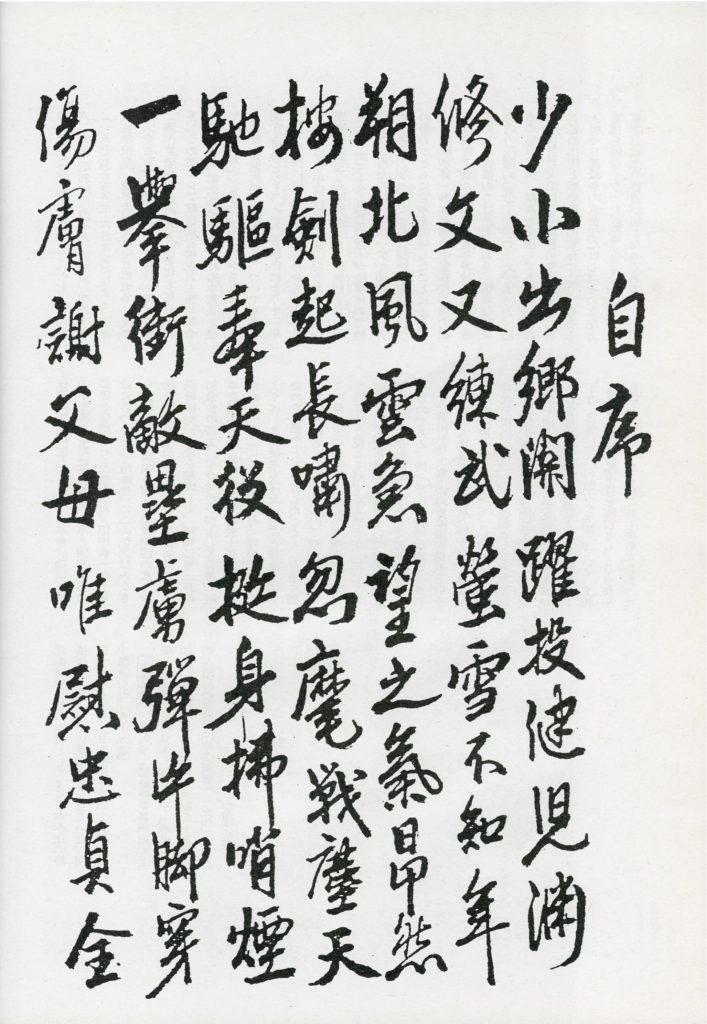 自序
少小出鄉關躍投健児淵
修文又練武螢雪不知年
朔北風雲急望之氣昂然
按劍起長嘯忽麾戰塵天
馳驅奉天役挺身掃哨煙
一擧衝敵壘虜彈片脚穿
傷膚謝父母唯慰忠貞全